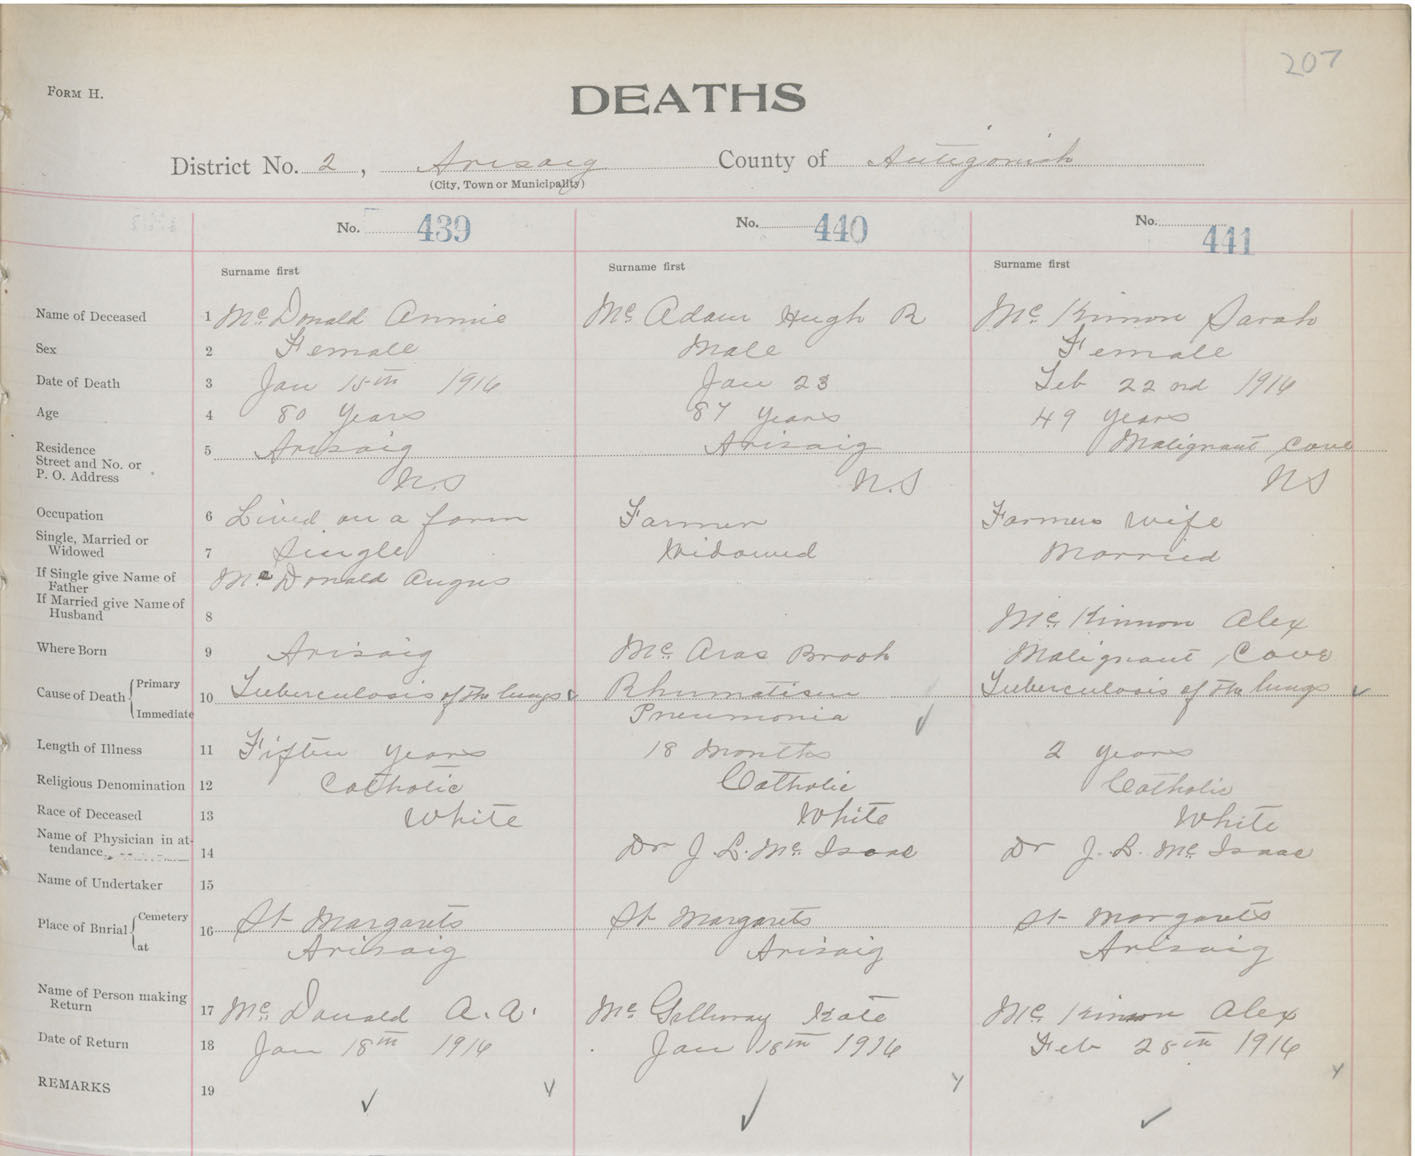 207
FORM H.
DEATHS
District No. 2, Arisaig County of Antigonish
(City, Town or Municipality)
No. 439 No. 440 No. 441
Surname first Surname first Surname first
Name of Deceased 1 Mc Donald Annie Mc Adam Hugh R Mc Kinnon Sarah
Sex 2 Female Male Female
Date of Death 3 Jan 15th 1916 Jan 23 Feb 22nd 1916
Age 4 80 Years 87 Years 49 years
Residence 5 Arisaig Arisaig Malignant Cove
Street and No. or
P. O. Address N.S N.S NS
Occupation 6 Lived on a farm Farmer Farmers Wife
Single, Married or
Widowed 7 Single Widowed Married
If Single give Name of
Father Mc Donald Angus
If Married give Name of
Husband 8 Mc Kinnon Alex
Where Born 9 Arisaig Mc Aras Brook Malignant Cove
Cause of Death Primary 10 Tuberculosis of the lungs Rhumatism Tuberculosis of the lungs
Immediate Pneumonia
Length of Illness 11 Fiften years 18 Months 2 years
Religious Denomination 12 Catholic Catholic Catholic
Race of Deceased 13 White White White
Name of Physician in at-
tendance 14 Dr J. L. Mc Isaac Dr J. L. Mc Isaac
Name of Undertaker 15
Place of Burial Cemetery 16 St Margarets St Margarets St Margarets
at Arisaig Arisaig Arisaig
Name of Person making
Return 17 Mc Donald A. A. Mc Gillivray Kate Mc Kinnon Alex
Date of Return 18 Jan 18th 1916 Jan 18th 1916 Feb 28th 1916
REMARKS 19